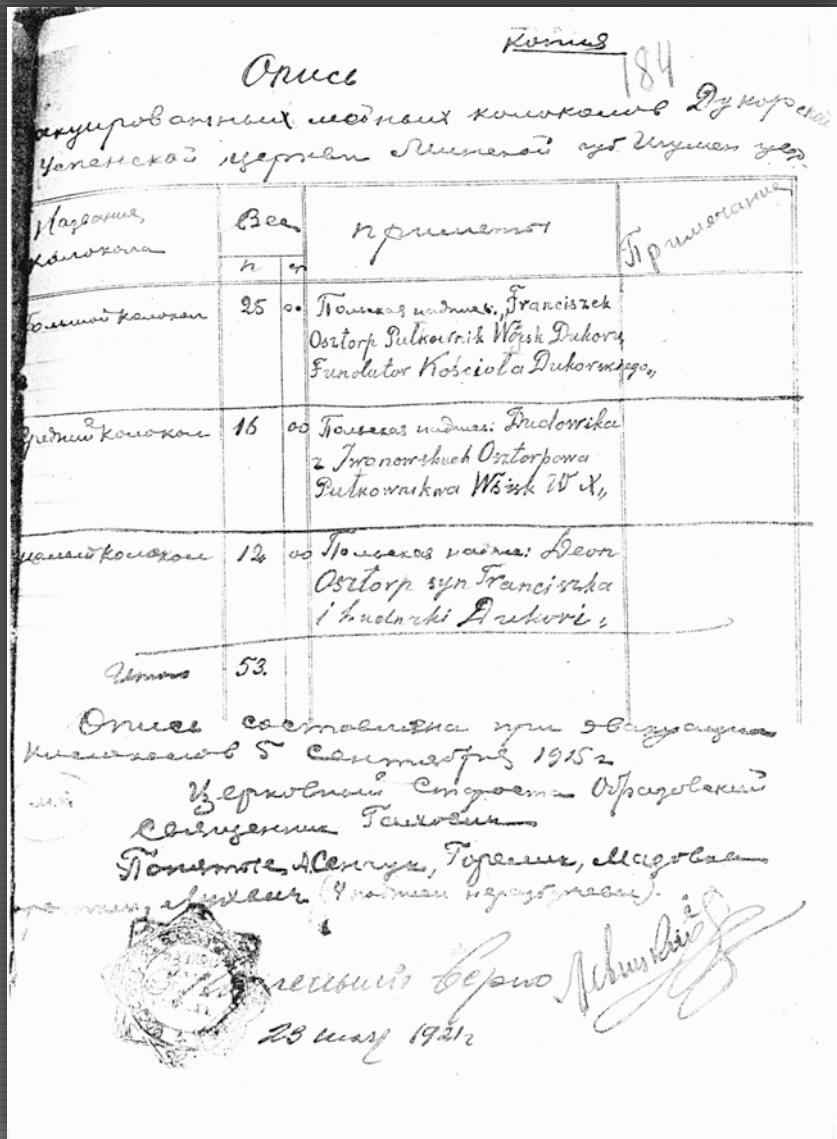 копия
184
Опись
акуированных медных колоколов Дукорской
Успенской церкви Минской губ Игумен уез.
Название колокола
Вес
п
приметы
Примечание
Большой колокол 25 00 Польская надпись: „Franciszek
Osztorp Pułkownik Wojsk Dukory
Fundator Kościoła Dukorskiego„
средний колокол 16 00 Польская надпис: Ludowika
z Iwanowskich Osztorpowa
Pułkownikwa Wojsk W X„
малый колокол 12 00 Польская надпис: Leon
Osztorp syn Franciszka
i Ludwiki Dukori„
Итого 53.
Опись составлена при эвакуации
колоколов 5 Сентября 1915 г
Церковный Староста Образовский
Священник
Понятые А Сенчук, Горелик,
(4 подписи неразборчивы).
верно Левицкий
23 мая 1921 г